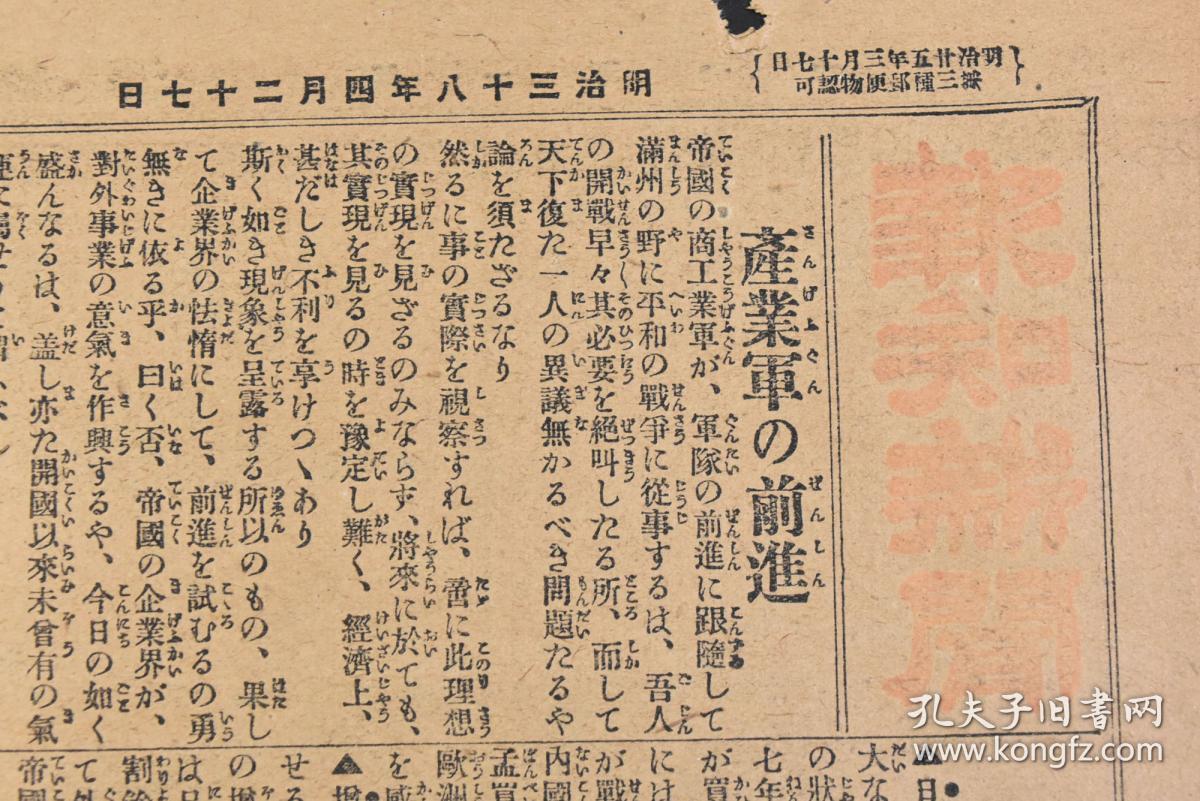 明治三十八年四月二十七日
明治廿五年三月十七日
第三種郵便物認可
產業軍の前進
帝國の商工業軍が、軍隊の前進に跟隨して
滿州の野に平和の戰爭に從事するは、吾人
の開戰早々其必要を絕叫したる所、而して
天下復た一人の異議無かるべき問題たるや
論を須たざるなり
然るに事の實際を視察すれば、啻に此理想
の實現を見ざるのみならず、將來に於ても、
其實現を見るの時を豫定し難く、經濟上、
甚だしき不利を享けつゝあり
斯く如き現象を呈露する所以のもの、果し
て企業界の怯惰にして、前進を試むるの勇
無きに依る乎、曰く否、帝國の企業界が、
對外事業の意氣を作興するや、今日の如く
盛んなるは、盖し亦た開國以來未曾有の氣
大な
の狀
七年
が買
には
が戰
內國
孟買
歐洲
を感
せる
の增
は日
割餘
て外
帝國
孔夫子旧书网
www.kongfz.com